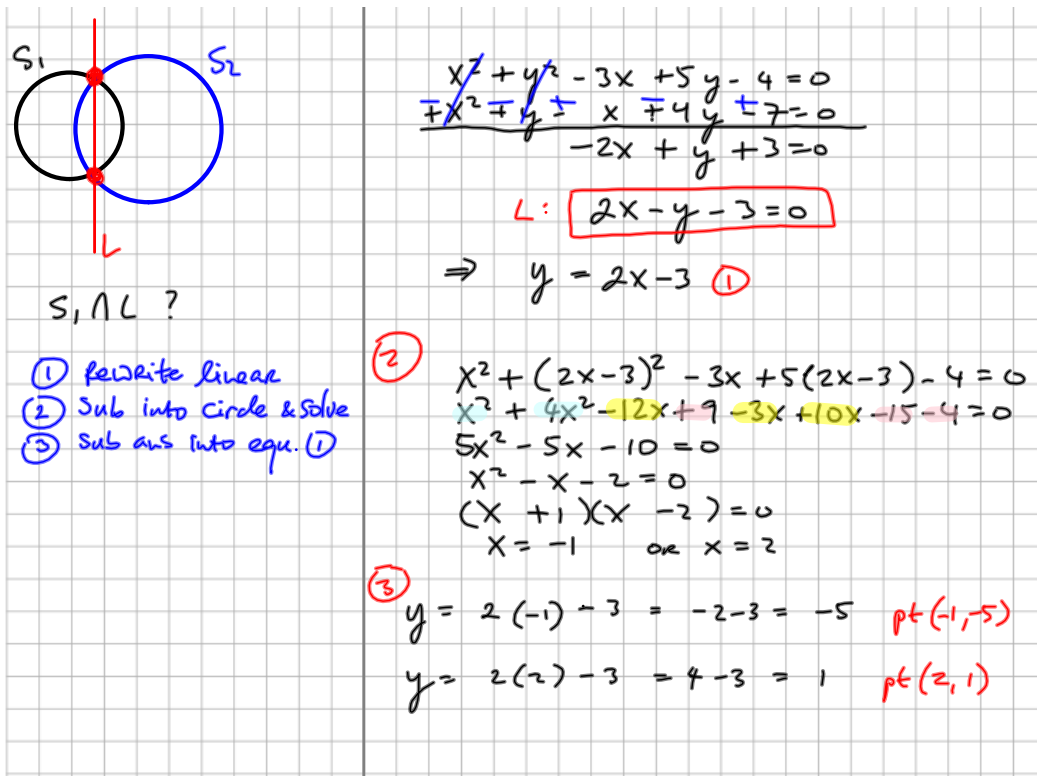 S₁ S₂
L
S₁ ∩ L ?
① Rewrite linear
② Sub into circle & solve
③ Sub ans into equ. ①
x² + y² - 3x + 5y - 4 = 0
+x² + y² - x + 4y - 7 = 0
- - + - +
-2x + y + 3 = 0
L: 2x - y - 3 = 0
⇒ y = 2x - 3 ①
②
x² + (2x-3)² - 3x + 5(2x-3) - 4 = 0
x² + 4x² - 12x + 9 - 3x + 10x - 15 - 4 = 0
5x² - 5x - 10 = 0
x² - x - 2 = 0
(x + 1)(x - 2) = 0
x = -1 or x = 2
③
y = 2(-1) - 3 = -2 - 3 = -5 pt (-1, -5)
y = 2(2) - 3 = 4 - 3 = 1 pt (2, 1)